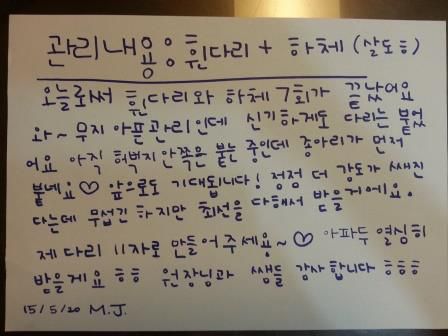 관리내용 : 휜다리 + 하체 (살도ㅎ)
오늘로써 휜다리와 하체 7회가 끝났어요
와~ 무지 아픈관리인데 신기하게도 다리는 붙었
어요 아직 허벅지 안쪽은 붙는 중인데 종아리가 먼저
붙네요♡ 앞으로도 기대됩니다! 점점 더 강도가 쌔진
다는데 무섭긴 하지만 최선을 다해서 받을게요.
제 다리 11자로 만들어 주세요~♡ 아파두 열심히
받을게요 ㅎㅎ 원장님과 쌤들 감사합니다 ㅎㅎㅎ
15/5/20 M.J.